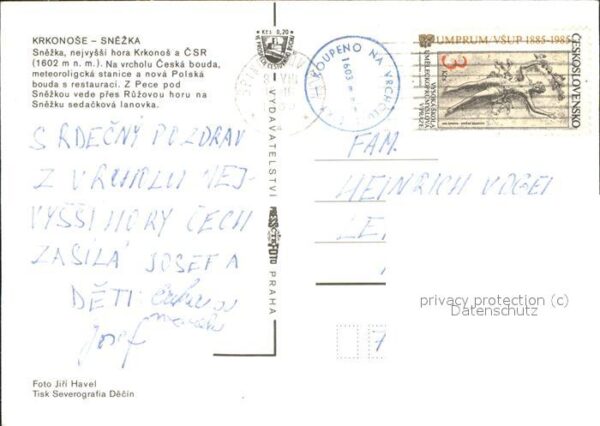 KRKONOŠE – SNĚŽKA
Sněžka, nejvyšší hora Krkonoš a ČSR
(1602 m n. m.). Na vrcholu Česká bouda,
meteorologická stanice a nová Polská
bouda s restaurací. Z Pece pod
Sněžkou vede přes Růžovou horu na
Sněžku sedačková lanovka.
SRDEČNÝ POZDRAV
Z VRCHOLU NEJ-
VYŠŠÍ HORY ČECH
ZASÍLÁ JOSEF A
DĚTI
Josef
Foto Jiří Havel
Tisk Severografia Děčín
Kčs 0,20
VYDAVATELSTVÍ
PRAHA
KOUPENO NA VRCHOLU
1603 m
UMPRUM/VŠUP 1885-1985
ČESKOSLOVENSKO
3 Kčs
VYSOKÁ ŠKOLA
UMĚLECKOPRŮMYSLOVÁ
V PRAZE
FAM.
HEINRICH VOGEL
LE
7
privacy protection (c)
Datenschutz